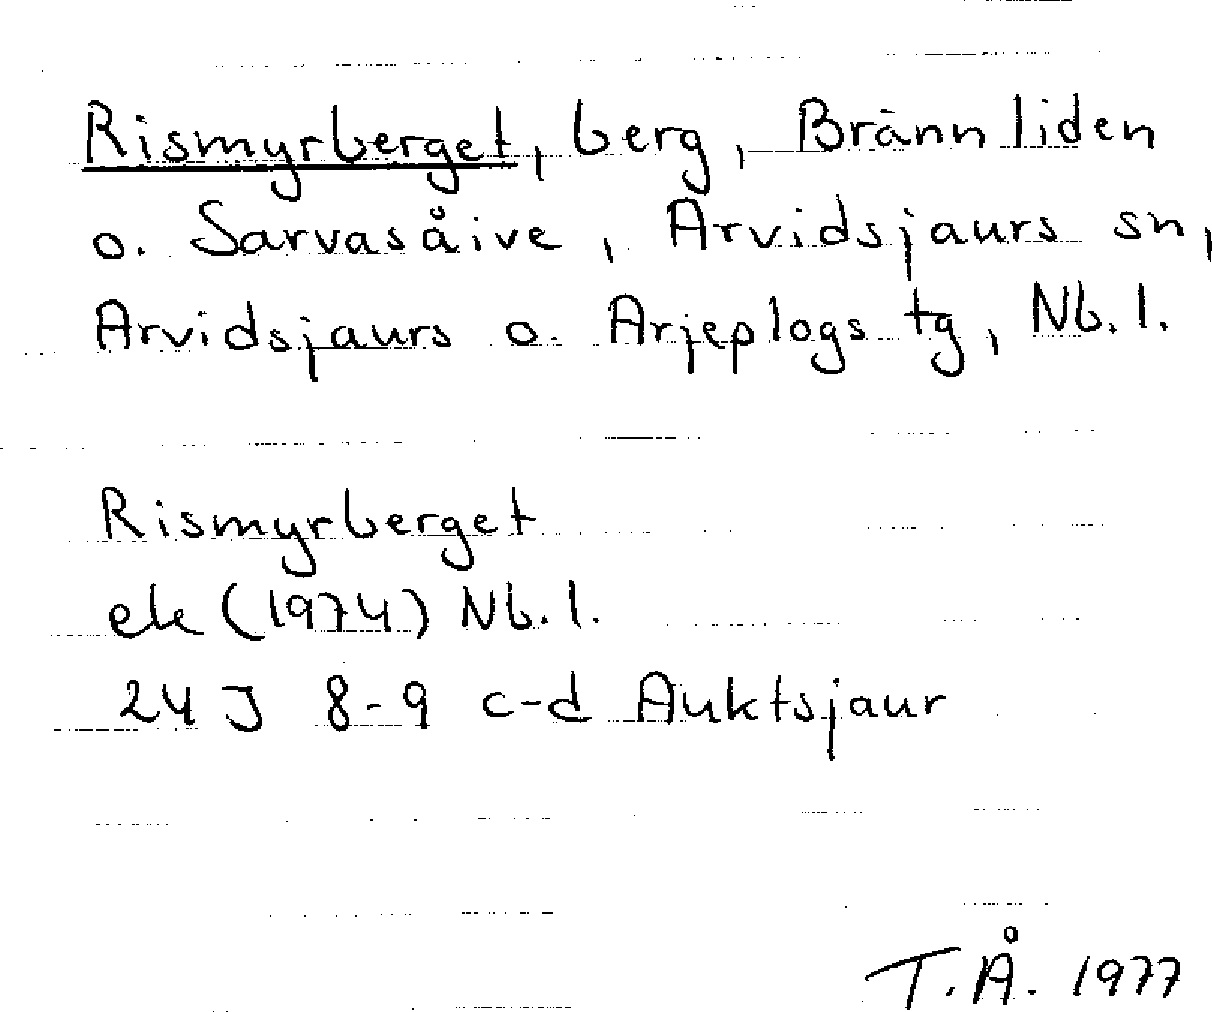 Rismyrberget, berg, Brännliden
o. Sarvasåive, Arvidsjaurs sn,
Arvidsjaurs o. Arjeplogs tg, Nb. l.
Rismyrberget
ek (1974) Nb. l.
24 J 8-9 c-d Auktsjaur
T.Å. 1977